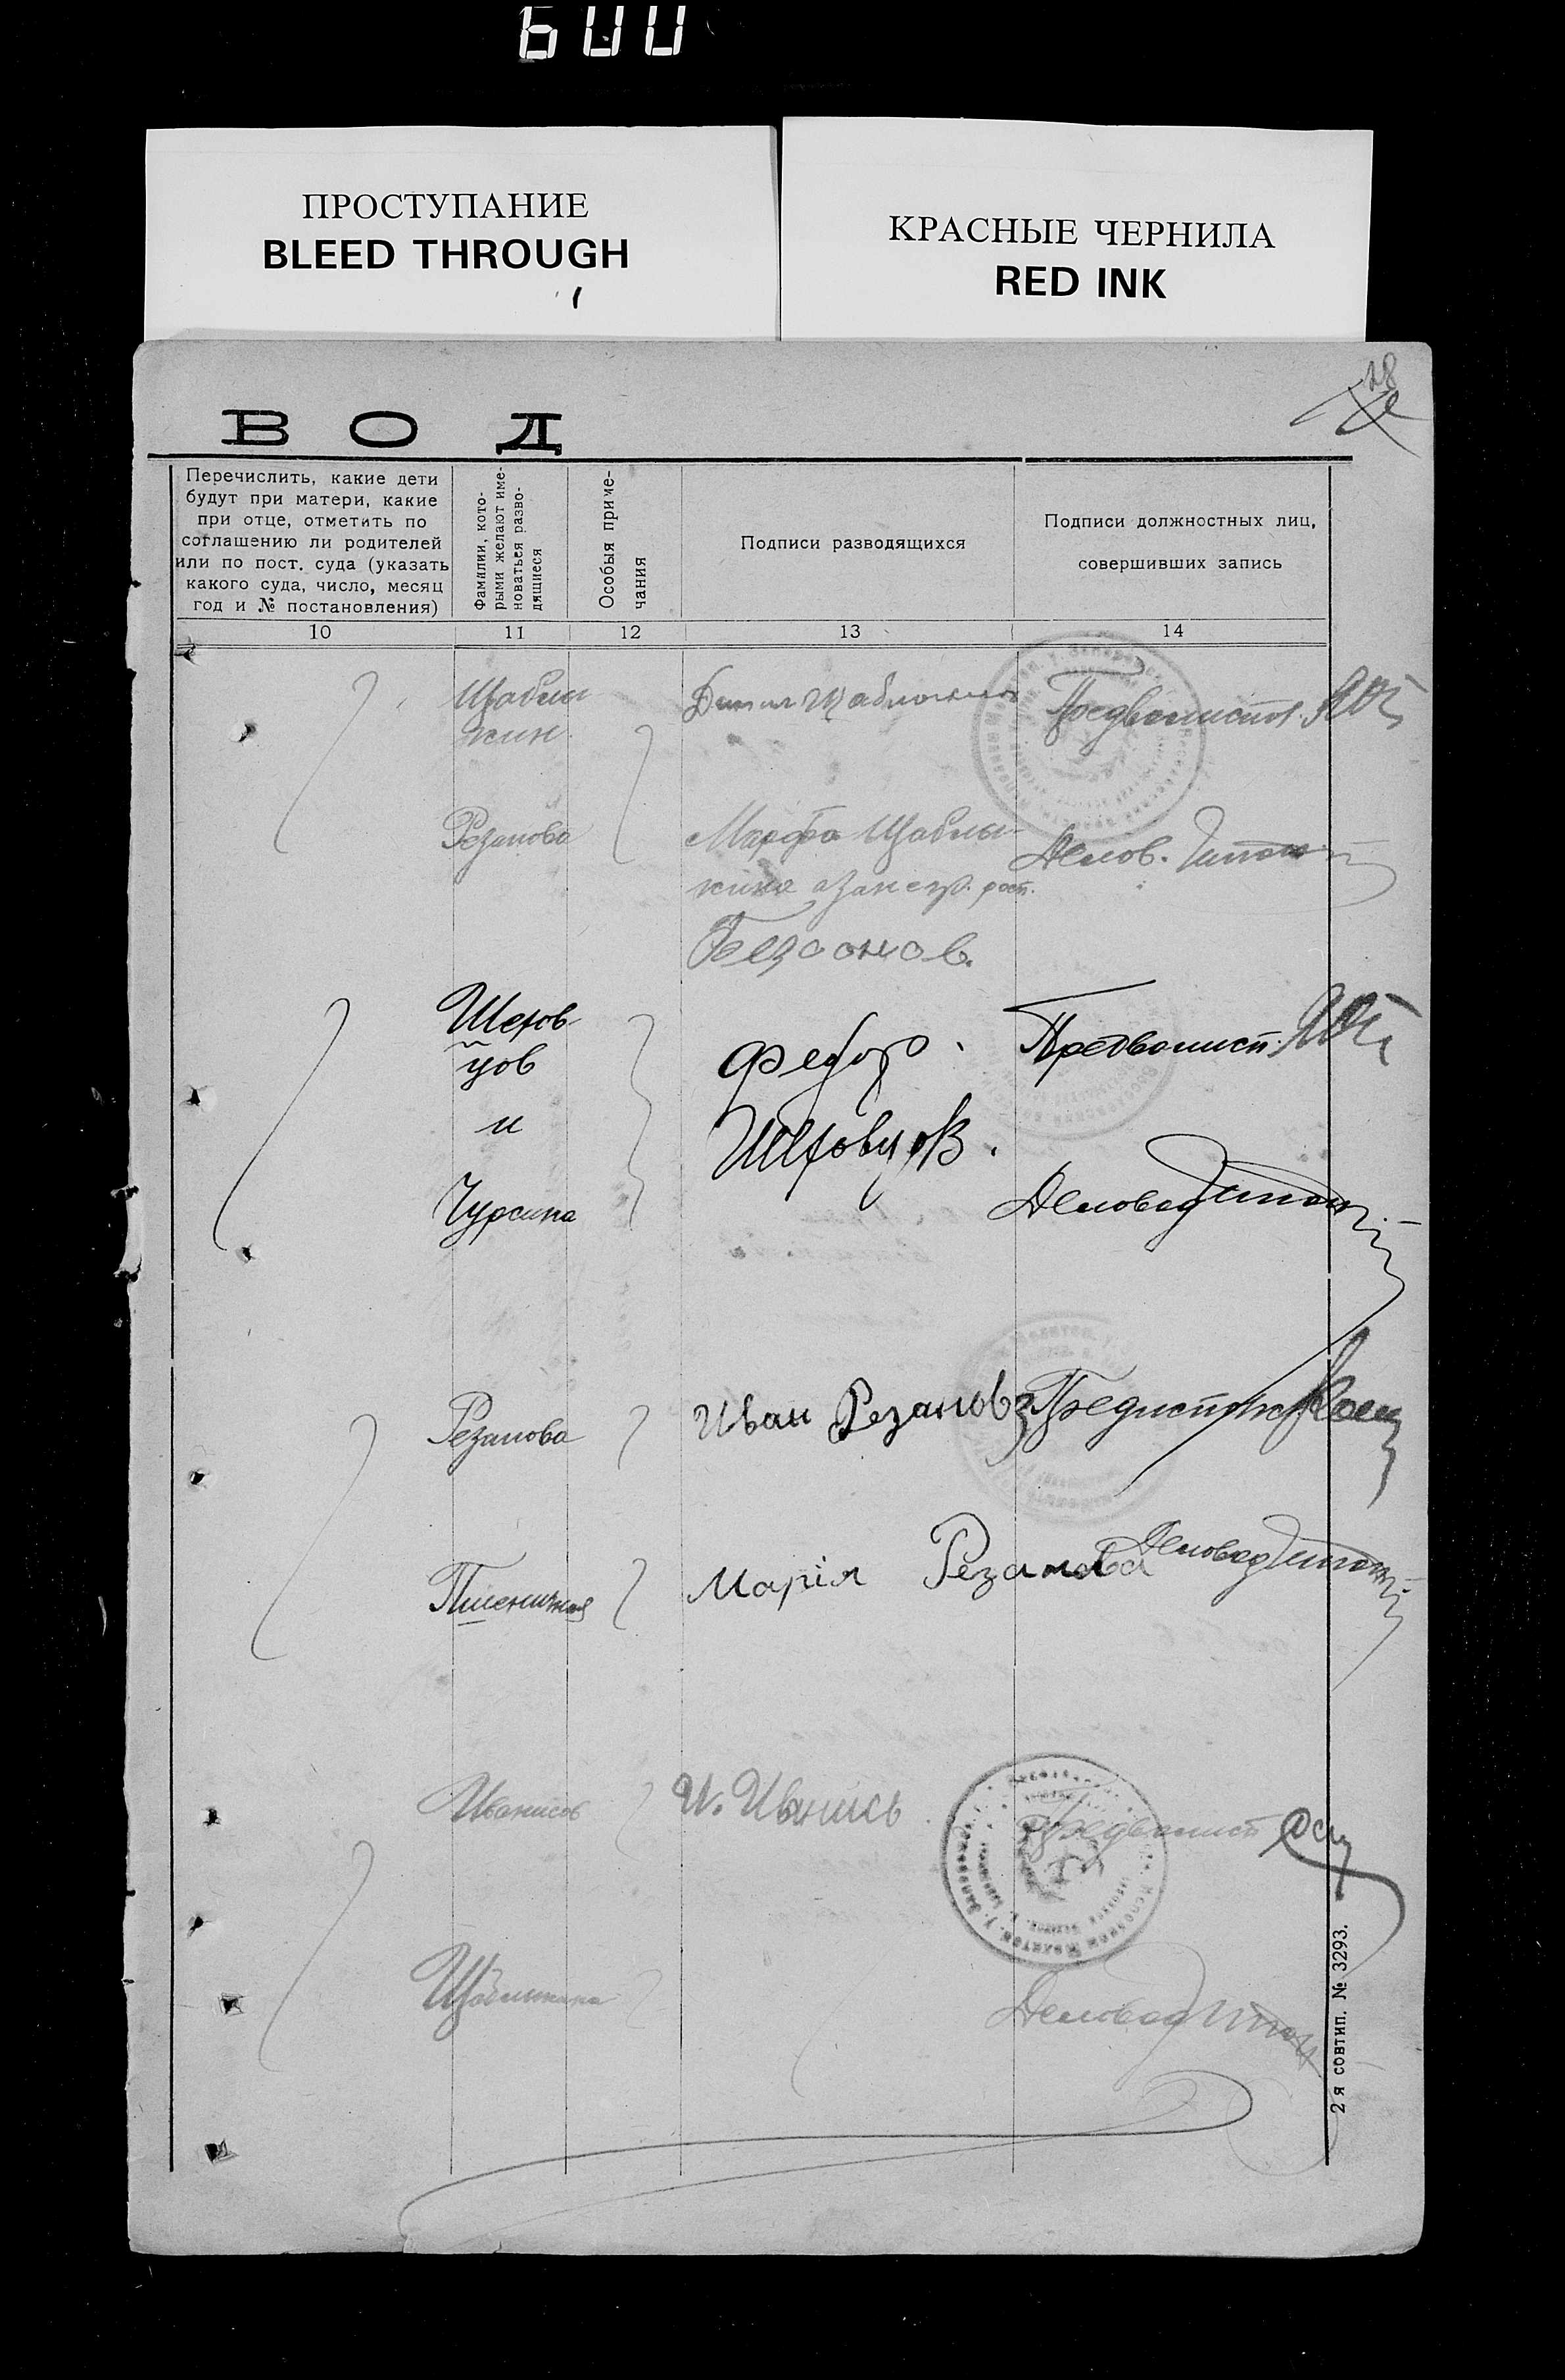 600
ПРОСТУПАНИЕ
BLEED THROUGH
КРАСНЫЕ ЧЕРНИЛА
RED INK
28
ВОД
Перечислить, какие дети
будут при матери, какие
при отце, отметить по
соглашению ли родителей
или по пост. суда (указать
какого суда, число, месяц
год и № постановления)
Фамилии, кото-
рыми желают име-
новаться разво-
дящиеся
Особыя приме-
чания
Подписи разводящихся
Подписи должностных лиц,
совершивших запись
10 11 12 13 14
Щаблы
кин
Предволисп.
Резанова
Марфа Щаблы-
кина а за не гр. расп.
Делов.
Безсонов.
Шехов-
цов
и
Чурсина
Федор.
Шеховцов.
Предволисп.
Деловод
Резанова
Иван Резановъ
Пшеничная
Марія Резанова
Деловод
Иванисов
И. Иванись
Предволисп
Щаблыкина
Деловод
2 я совтип. № 3293.